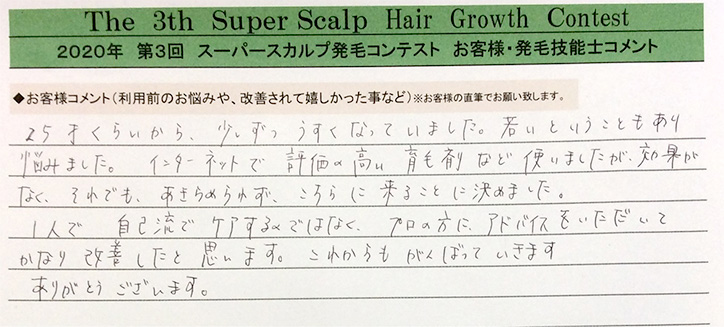 The 3th Super Scalp Hair Growth Contest
2020年 第3回 スーパースカルプ発毛コンテスト お客様・発毛技能士コメント
◆お客様コメント(利用前のお悩みや、改善されて嬉しかった事など)※お客様の直筆でお願い致します。
25才くらいから、少しずつ うすくなっていました。若いということもあり
悩みました。 インターネットで 評価の高い 育毛剤 など 使いましたが、効果が
なく、それでも、あきらめられず、こちらに 来ることに決めました。
1人で 自己流で ケアするのではなく、 プロの方に、アドバイスをいただいて
かなり 改善したと 思います。 これからも がんばって いきます
ありがとう ございます。